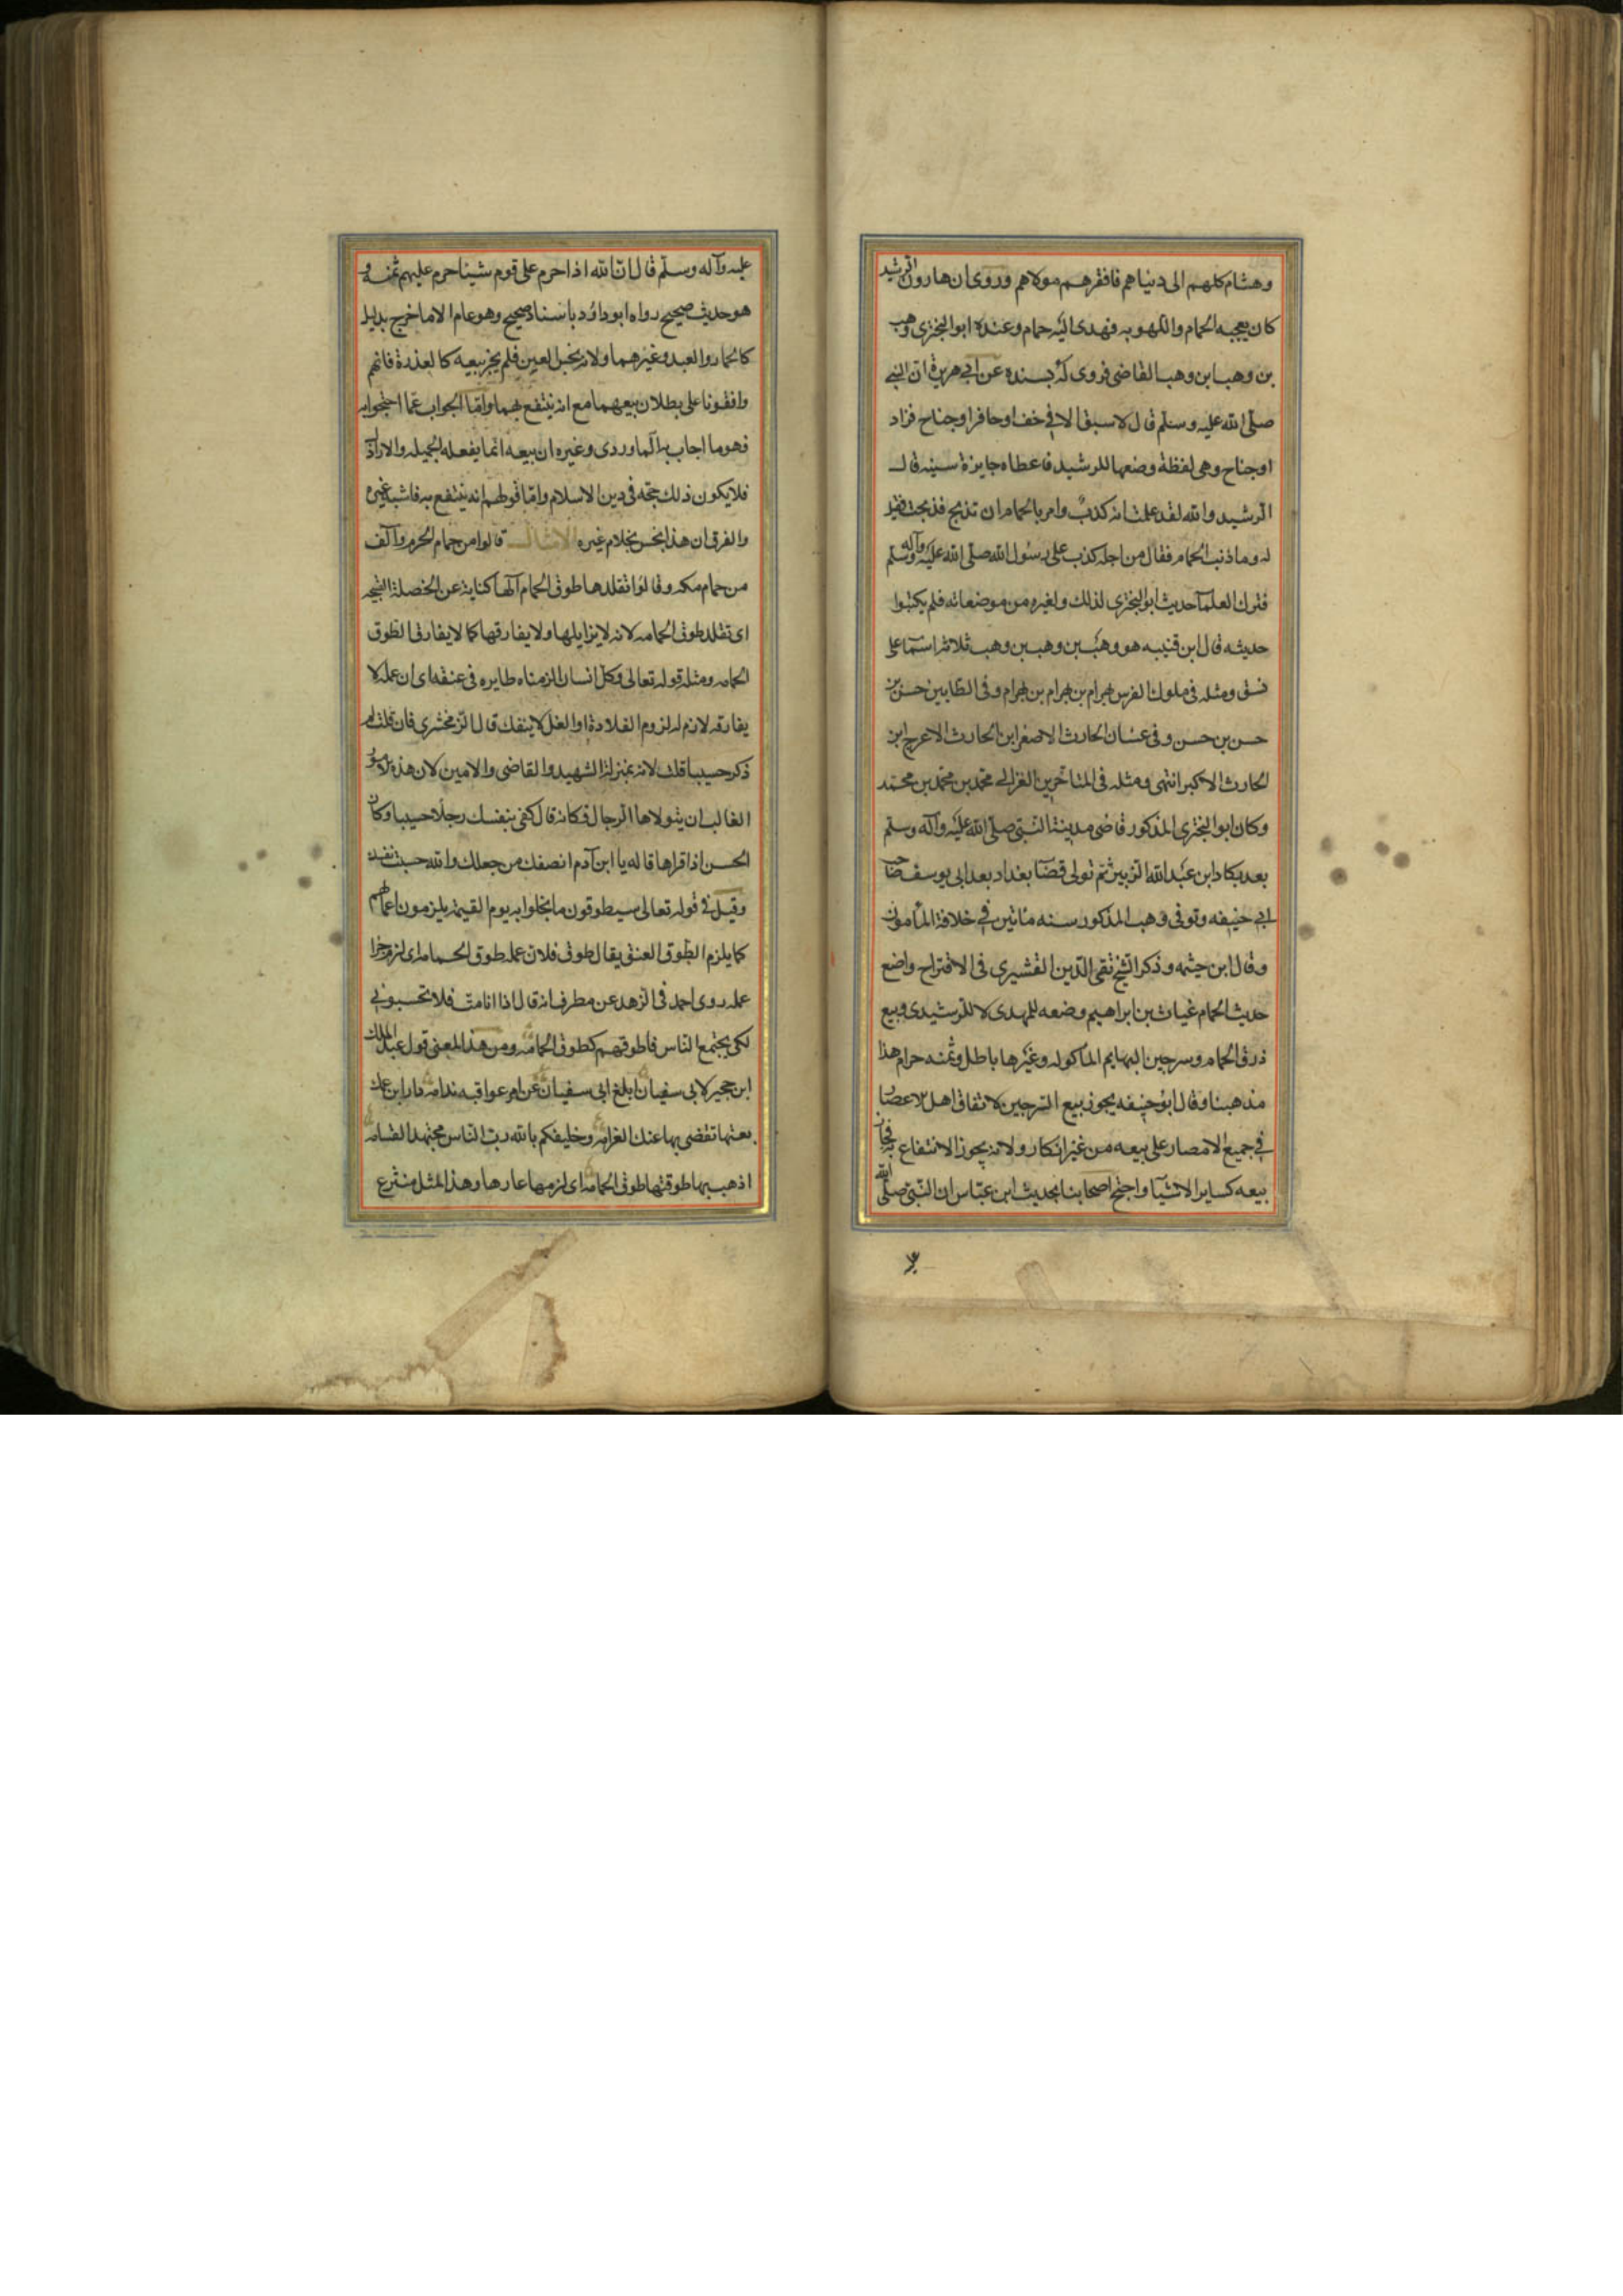 وهشام كلهم الى دنياهم فافقرهم مولاهم وروى ان هارون الرشيد
كان يعجبه الحمام واللهو به فهدى اليه حمام وعنده ابو البخترى وهب
بن وهب ابن وهب القاضى فروى له بسنده عن ابى هريرة ان النبى
صلى الله عليه وسلم قال لا سبق الا فى خف او حافر او جناح فزاد
او جناح وهى لفظة وضعها للرشيد فاعطاه جايزة سنيه قال
الرشيد والله لقد علمت انه كذب وامر بالحمام ان تذبح فذبحت فقيل
له وما ذنب الحمام فقال من اجله كذب على رسول الله صلى الله عليه وآله وسلم
فترك العلمآ حديث ابو البخترى لذلك ولغيره من موضعاته فلم يكتبوا
حديثه قال ابن قتيبه هو وهب بن وهب بن وهب ثلاثة اسما على
نسق ومثله فى ملوك الفرس بهرام بن بهرام بن بهرام وفى الطابيين حسن بن
حسن بن حسن وفى غسان الحارث الاصغر ابن الحارث الاعرج ابن
الحارث الاكبر انتهى ومثله فى المتاخرين الغزالى محمد بن محمد بن محمد
وكان ابو البخترى المذكور قاضى مدينة النبى صلى الله عليه وآله وسلم
بعد بكار ابن عبد الله الزبيرى ثم تولى قضا بغداد بعد ابى يوسف صاحب
ابى حنيفه وتوفى وهب المذكور سنه مأتين فى خلافة المأمون
وقال ابن حيثمه وذكر الشيخ تقى الدين القشيرى فى الاقتراح واضع
حديث الحمام غياث بن ابراهيم وضعه للمهدى لا للرشيدى وبيع
ذرق الحمام وسرجين البهايم الماكوله وغيرها باطل وثمنه حرام هذا
مذهبنا وقال ابو حنيفه يجوز بيع السرجين لاتفاق اهل الاعصار
فى جميع الامصار على بيعه من غير انكار ولانه يجوز الانتفاع به فجاز
بيعه كساير الاشيآ واحتج اصحابنا بحديث ابن عباس ان النبى صلى الله
عليه وآله وسلم قال ان الله اذا حرم على قوم شيئا حرم عليهم ثمنه و
هو حديث صحيح رواه ابو داود باسناد صحيح وهو عام الا ما خرج بدليل
كالحمار والعبد وغيرهما ولانه نجس العين فلم يجز بيعه كالعذرة فانهم
وافقونا على بطلان بيعهما مع انه ينتفع بهما واما الجواب عما احتجوا به
فهو ما اجاب به الماوردى وغيره ان بيعه انما يفعله الجهيله والاراذل
فلا يكون ذلك حجة فى دين الاسلام واما قولهم انه ينتفع به فاشبه غيره
والفرق ان هذا نجس بخلام غيره الامثال قالوا من حمام الحرم وآلف
من حمام مكه وقالوا تقلدها طوق الحمام آلها كناية عن الخصلة القبيحه
اى تقلد طوق الحمامه لانه لا يزايلها ولا يفارقها كما لا يفارق الطوق
الحمامه ومثله قوله تعالى وكل انسان الزمناه طايره فى عنقه اى ان عمله لا
يفارقه لازم له لزوم القلادة او الغل لا ينفك قال الزمخشرى فان قلت لم
ذكر حسيبا قلت لانه بمنزلة الشهيد والقاضى والامين لان هذه الامور
الغالب ان يتولاها الرجال فكانه قال كفى بنفسك رجلا حسيبا وكان
الحسن اذا قراها قال يا ابن آدم انصفك من جعلك والله حسيب نفسك
وقيل فى قوله تعالى سيطوقون ما بخلوا به يوم القيمة يلزمون اعمالهم
كما يلزم الطوق العنق يقال طوق فلان عمله طوق الحمامه اى لزم جزا
عمله روى احمد فى الزهد عن مطرف انه قال اذا انا مت فلا تحسبونى
لكى يجتمع الناس فاطوقهم كطوق الحمامه ومن هذا المعنى قول عبد الملك
ابن حجير لابى سفيان ابلغ ابى سفيان عن امر عواقبه ندامه دار ابن عمك
بعتها تقضى بها عنك الغرامه وخليفكم بالله رب الناس مجتهد القسامه
اذهب بها طوقتها طوق الحمامه اى لزمها عارها وهذا المثل منتزع